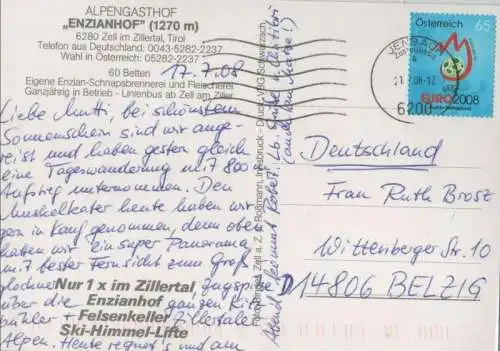 ALPENGASTHOF
„ENZIANHOF" (1270 m)
6280 Zell im Zillertal, Tirol
Telefon aus Deutschland: 0043-5282-2237
Wahl in Österreich: 05282-2237
60 Betten
17.7.08
Eigene Enzian-Schnapsbrennerei und Fleischerei
Ganzjährig in Betrieb - Linienbus ab Zell am Ziller
Liebe Mutti, bei schönstem
Sonnenschein sind wir ange-
reist und haben gestern gleich
eine Tageswanderung mit 800
Aufstieg unternommen. Den
Muskelkater heute haben wir
gern in Kauf genommen, denn oben
hatten wir ein super Panorama
mit bester Fernsicht zum Groß
glockner Zugspi
über die ganzen Kitz
bühler + Zillertaler
Alpen. Heute regnet's und am
Nur 1 x im Zillertal,
Enzianhof
+ Felsenkeller
Ski-Himmel-Lifte
Abend bekommt Robert
Roßmann, Innsbruck - Druck: VPG Schwarzach
Österreich 65
EURO2008
JENBACH
6200
Deutschland
Frau Ruth Brosz
Wittenberger Str. 10
D 14806 BELZIG